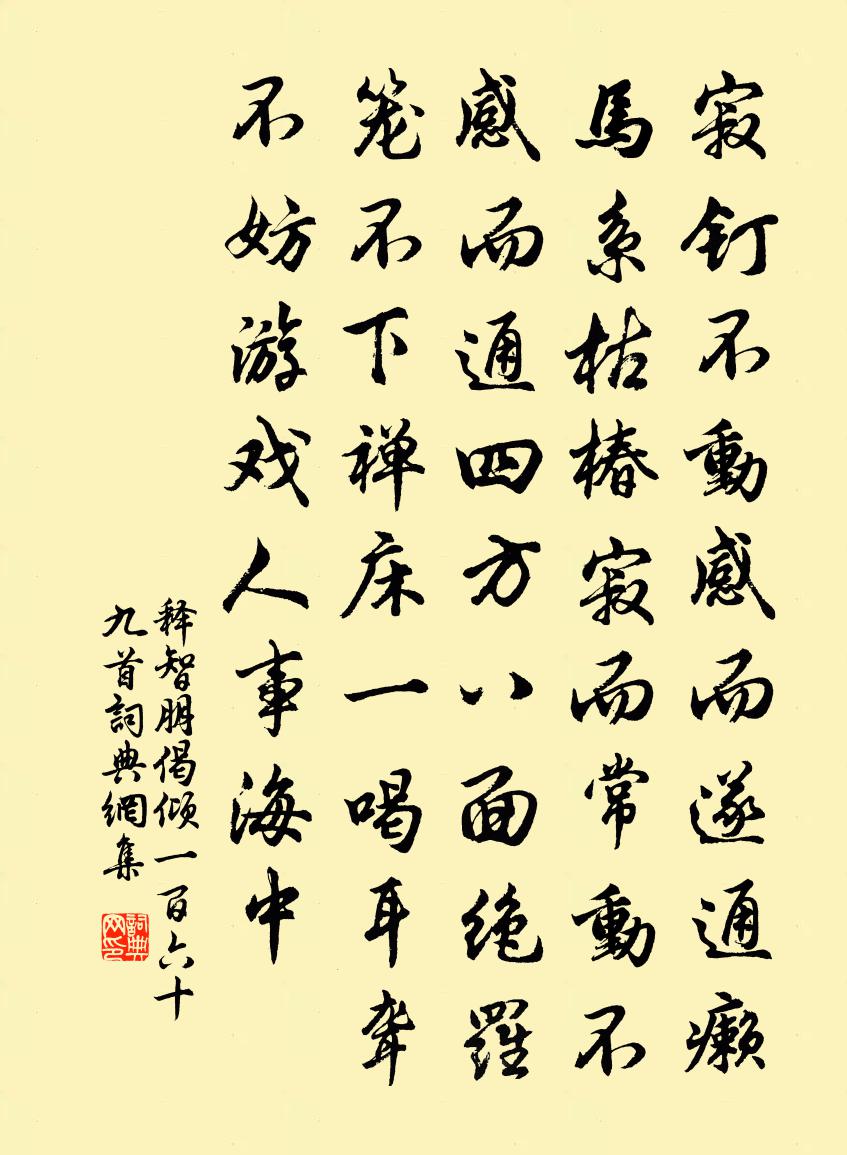 寂钉不動感而遂通癞
馬系枯樁寂而常動不
感而通四方八面绝羅
笼不下禅床一喝耳聋
不妨游戏人事海中
释智朋偈倾一百六十
九首詞典網集
詞典网印